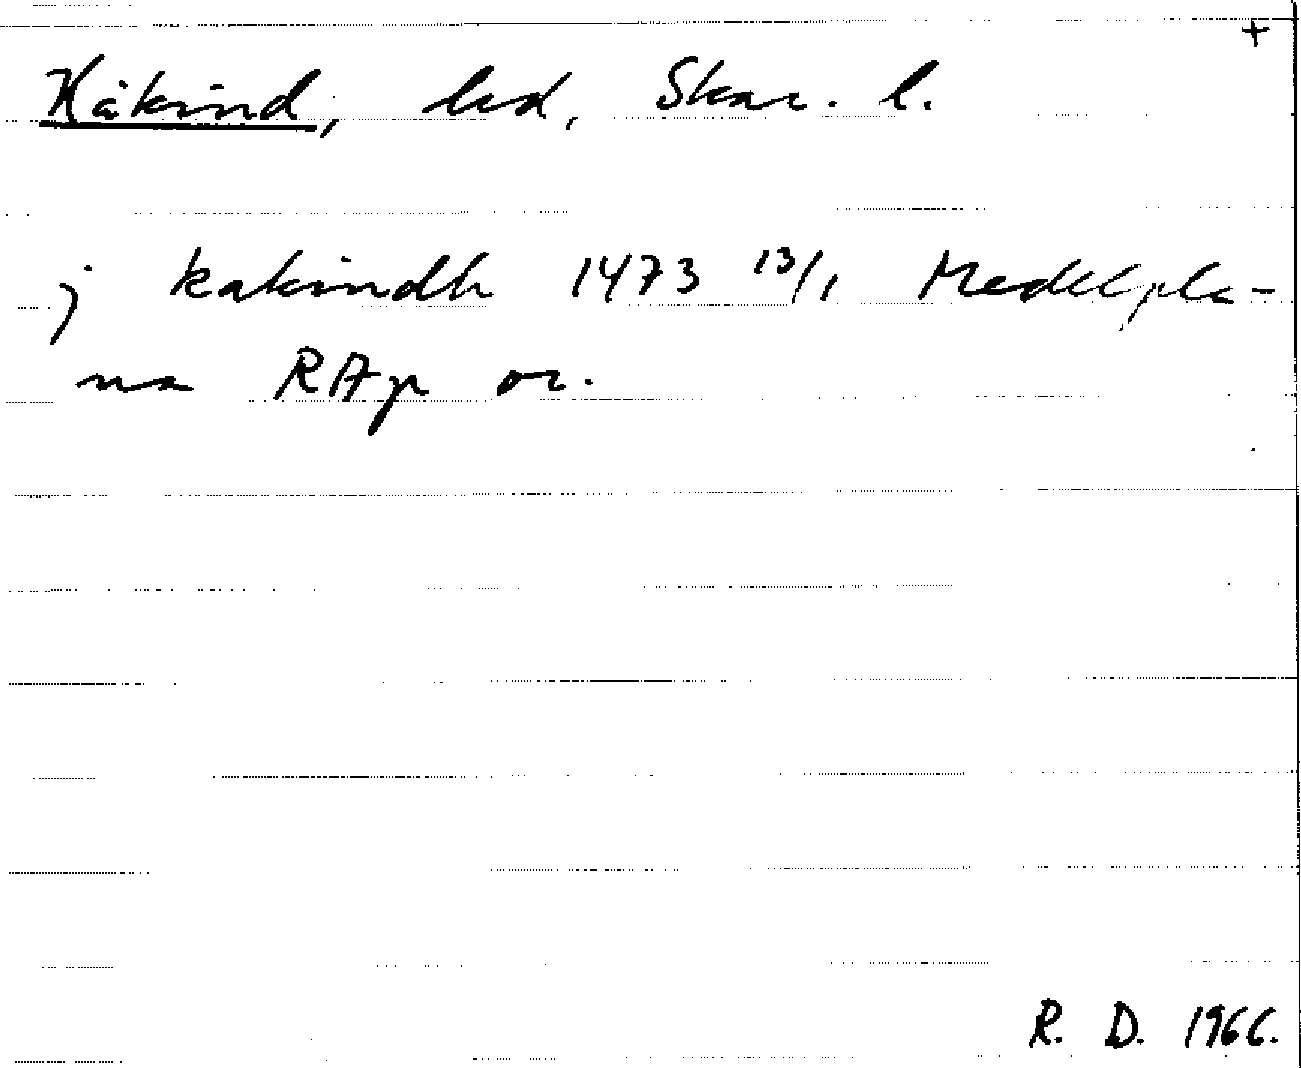 +
Kåkind, hd, Skar. l.
j kakindh 1473 13/1 Medelpla-
na RAp or.
R. D. 1966.